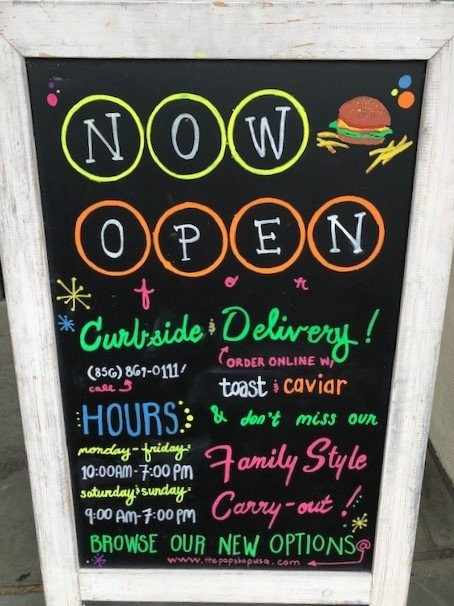 NOW
OPEN
for
Curbside & Delivery!
(856) 869-0111!
call
ORDER ONLINE W/
toast & caviar
HOURS:
& don't miss our
monday-friday:
10:00AM-7:00 PM
Family Style
saturday & sunday:
9:00 AM-7:00 PM
Carry-out!
BROWSE OUR NEW OPTIONS@
www.thepopshopusa.com